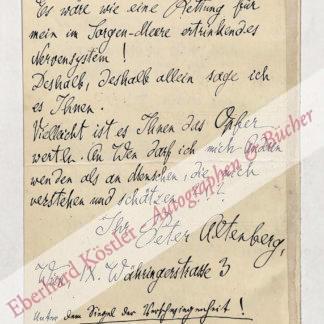 Es wäre wie eine Rettung für
mein im Sorgen-Meere ertrinkendes
Nervensystem!
Deshalb, deshalb allein sage ich
es Ihnen.
Vielleicht ist es Ihnen das Opfer
werth. An Wen darf ich mich
wenden als an Menschen, die mich
verstehen und schätzen
Ihr Peter Altenberg,
Wien, IX. Währingerstrasse 3
Unter dem Siegel der Verschwiegenheit!
Eberhard Köstler Autographen & Bücher